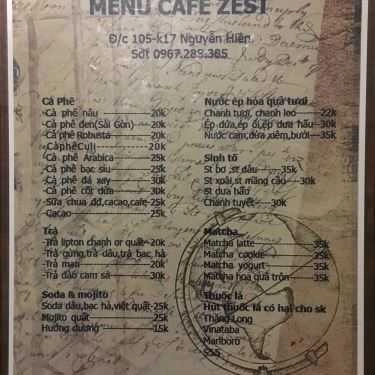 MENU CAFE ZEST
Đ/c 105-k17 Nguyễn Hiền
Sđt 0967.283.385
Cà Phê
-Cà phê nâu 20k
-Cà phê đen(Sài Gòn) 20k
-Cà phê Robusta 20k
-CàphêCuli 20k
-Cà phê Arabica 25k
-Cà phê bạc sỉu 25k
-Cà phê đá xay 30k
-Cà phê cốt dừa 30k
-Sữa chua đđ,cacao,cafe 25k
-Cacao 25k
Trà
-Trà lipton chanh or quất 20k
-Trà gừng,trà dâu,trà bạc hà
-Trà man 20k
-Trà đào cam sả 30k
Soda & mojito
Soda dâu,bạc hà,việt quất 25k
Mojito quất 25k
Hướng dương 15k
Nước ép hoa quả tươi
Chanh tươi, chanh leo 22k
Ép dứa,ép ổi,ép dưa hấu 30k
Nước cam,dừa xiêm,bưởi 35k
Sinh tố
St bơ ,st dâu 35k
St xoài,st mãng cầu 30k
St dưa hấu
Chanh tuyết 30k
Matcha
Matcha latte 35k
Matcha cookie 25k
Matcha yogurt 35k
Matcha hoa quả trộn 35k
Thuốc lá
Hút thuốc lá có hại cho sk
Thăng Long
Vinataba
Marlboro
555